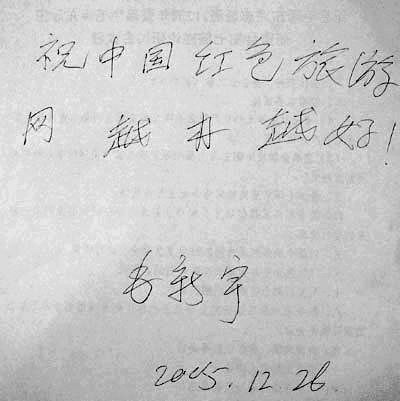 祝中国红色旅游
网 越办越好!
新宇
2005.12.26